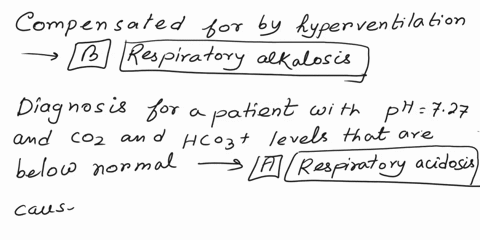 Compensated for by hyperventilation
→ B Respiratory alkalosis
Diagnosis for a patient with pH = 7.27
and CO2 and HCO3+ levels that are
below normal → A Respiratory acidosis
caus